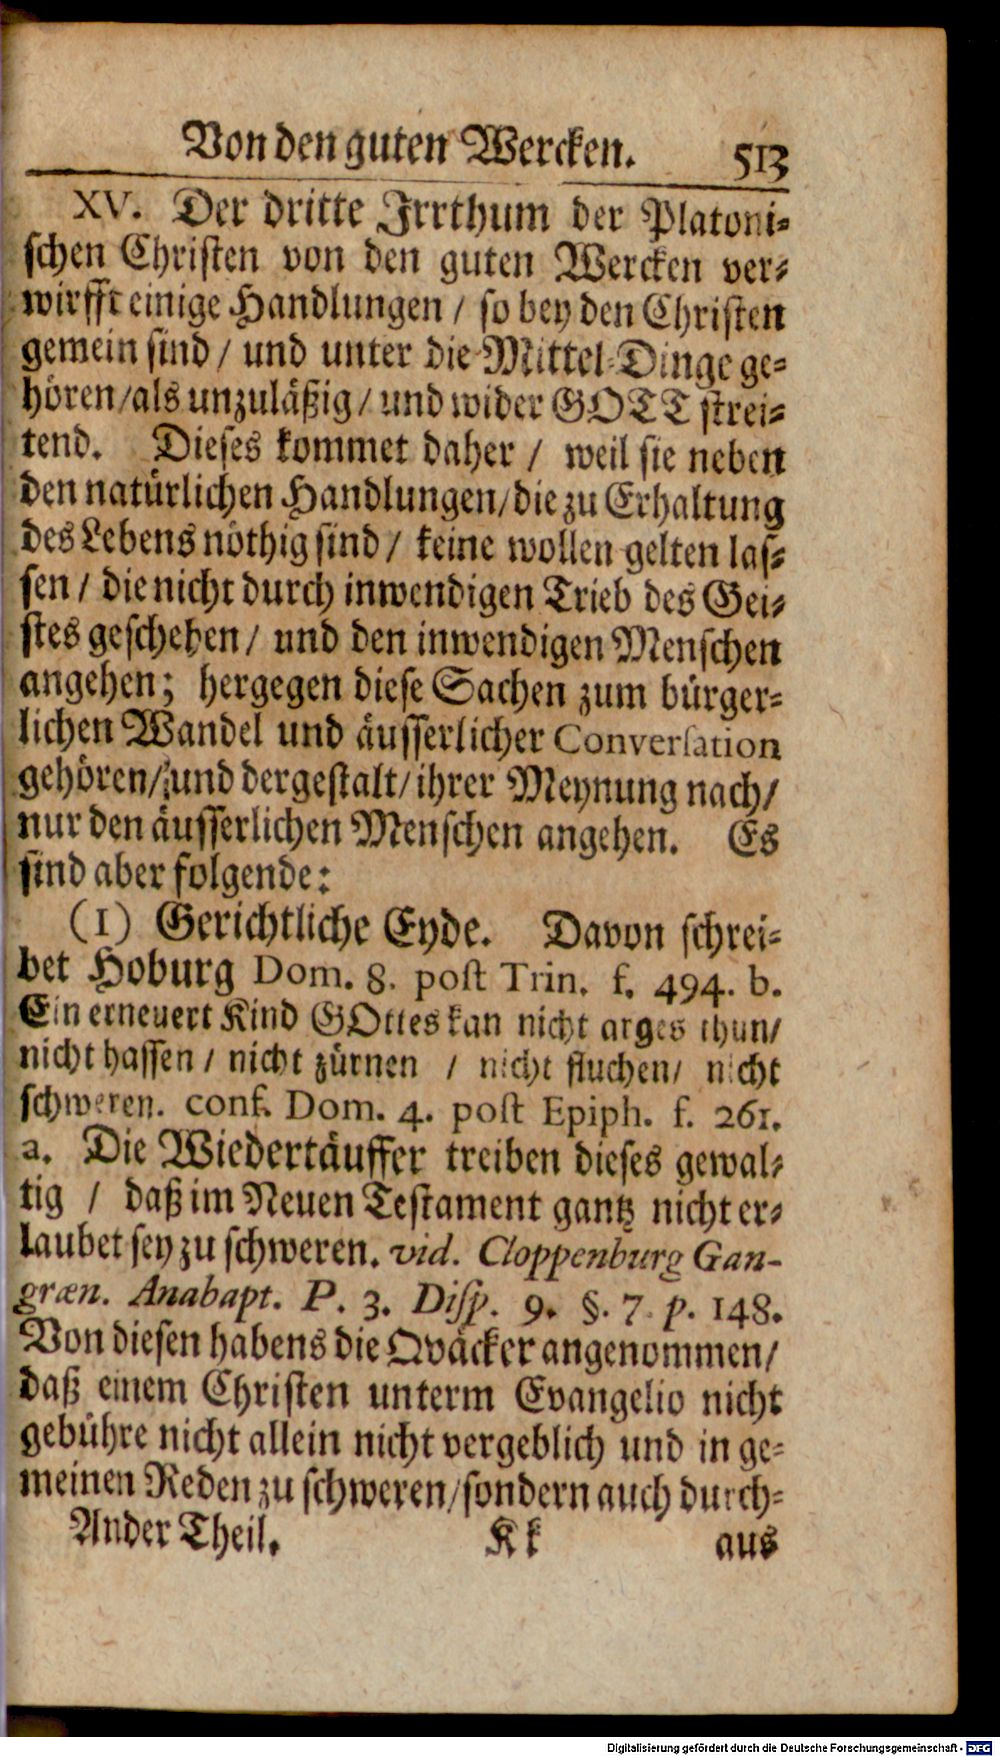 Von den guten Wercken. 513
XV. Der dritte Irrthum der Platoni-
schen Christen von den guten Wercken ver-
wirfft einige Handlungen / so bey den Christen
gemein sind / und unter die Mittel-Dinge ge-
hören / als unzuläßig / und wider GOTT strei-
tend. Dieses kommet daher / weil sie neben
den natürlichen Handlungen / die zu Erhaltung
des Lebens nöthig sind / keine wollen gelten las-
sen / die nicht durch inwendigen Trieb des Gei-
stes geschehen / und den inwendigen Menschen
angehen; hergegen diese Sachen zum bürger-
lichen Wandel und äusserlicher Conversation
gehören / und dergestalt / ihrer Meynung nach /
nur den äusserlichen Menschen angehen. Es
sind aber folgende:
(1) Gerichtliche Eyde. Davon schrei-
bet Hoburg Dom. 8. post Trin. f. 494. b.
Ein erneuert Kind GOttes kan nicht arges thun /
nicht hassen / nicht zürnen / nicht fluchen / nicht
schweren. conf. Dom. 4. post Epiph. f. 261.
a. Die Wiedertäuffer treiben dieses gewal-
tig / daß im Neuen Testament gantz nicht er-
laubet sey zu schweren. vid. Cloppenburg Gan-
græn. Anabapt. P. 3. Disp. 9. §. 7. p. 148.
Von diesen habens die Qväcker angenommen /
daß einem Christen unterm Evangelio nicht
gebühre nicht allein nicht vergeblich und in ge-
meinen Reden zu schweren / sondern auch durch-
Ander Theil. Kk aus
Digitalisierung gefördert durch die Deutsche Forschungsgemeinschaft - DFG